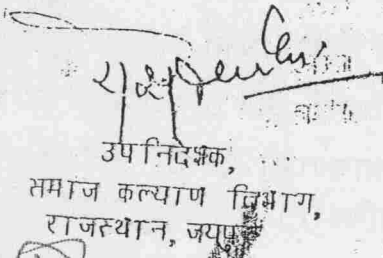 उप निदेशक,
समाज कल्याण विभाग,
राजस्थान, जयपुर